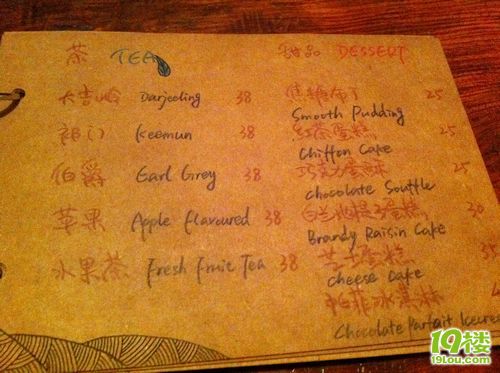 茶 TEA
大吉岭 Darjeeling 38
祁门 Keemun 38
伯爵 Earl Grey 38
苹果 Apple flavoured 38
水果茶 Fresh Fruit Tea 38
甜品 DESSERT
焦糖布丁 25
Smooth Pudding
红茶蛋糕 25
Chiffon Cake
巧克力蛋酥 25
Chocolate Souffle
白兰地提子蛋糕 30
Brandy Raisin Cake
芝士蛋糕 35
Cheese Cake
帕菲冰淇淋
Chocolate Parfait Icecre
19楼
19lou.com